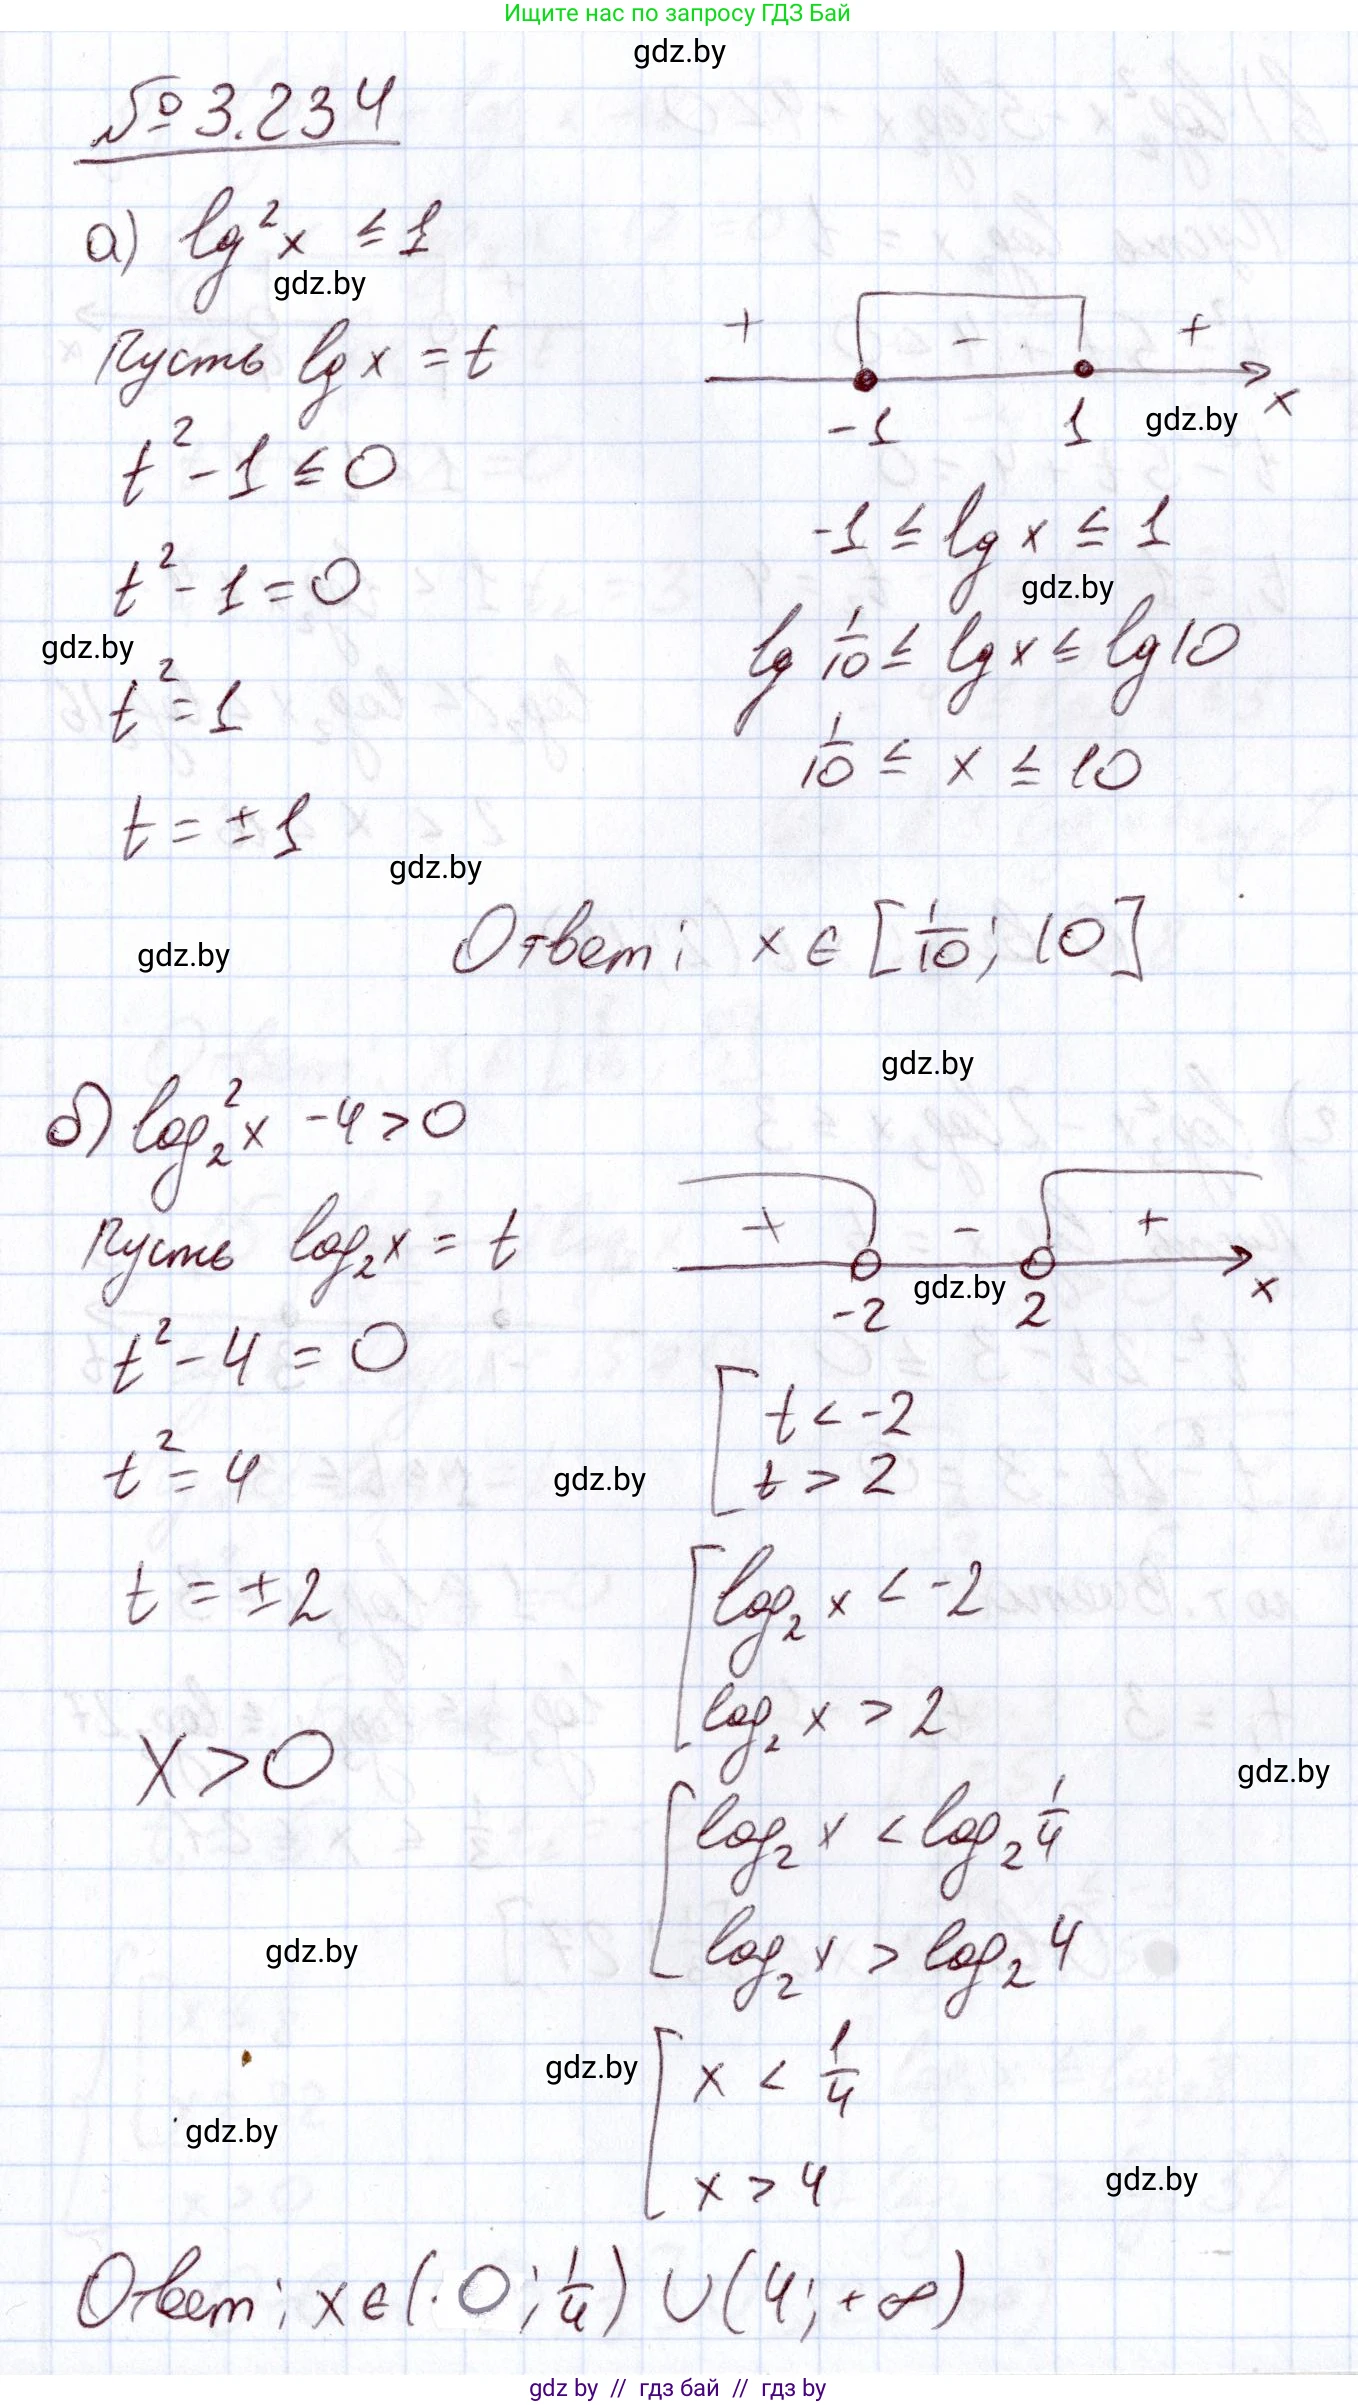 Ищите нас по запросу ГДЗ Бай
gdz.by
№ 3.234
а) lg²x ≤ 1
gdz.by
Пусть lg x = t
+ - +
-1 1 x
gdz.by
t² - 1 ≤ 0
t² - 1 = 0
gdz.by
t² = 1
t = ±1
gdz.by
-1 ≤ lg x ≤ 1
gdz.by
lg 1/10 ≤ lg x ≤ lg 10
1/10 ≤ x ≤ 10
gdz.by
Ответ: x ∈ [1/10; 10]
gdz.by
б) log₂²x - 4 > 0
Пусть log₂x = t
t² - 4 = 0
t² = 4
gdz.by
t = ±2
x > 0
+ - +
-2 gdz.by 2 x
[ t < -2
t > 2
[ log₂x < -2
log₂x > 2
gdz.by
[ log₂x < log₂ 1/4
log₂x > log₂ 4
gdz.by
[ x < 1/4
x > 4
gdz.by
gdz.by
gdz.by
Ответ: x ∈ (0; 1/4) ∪ (4; +∞)
gdz by // гдз бай // гдз by